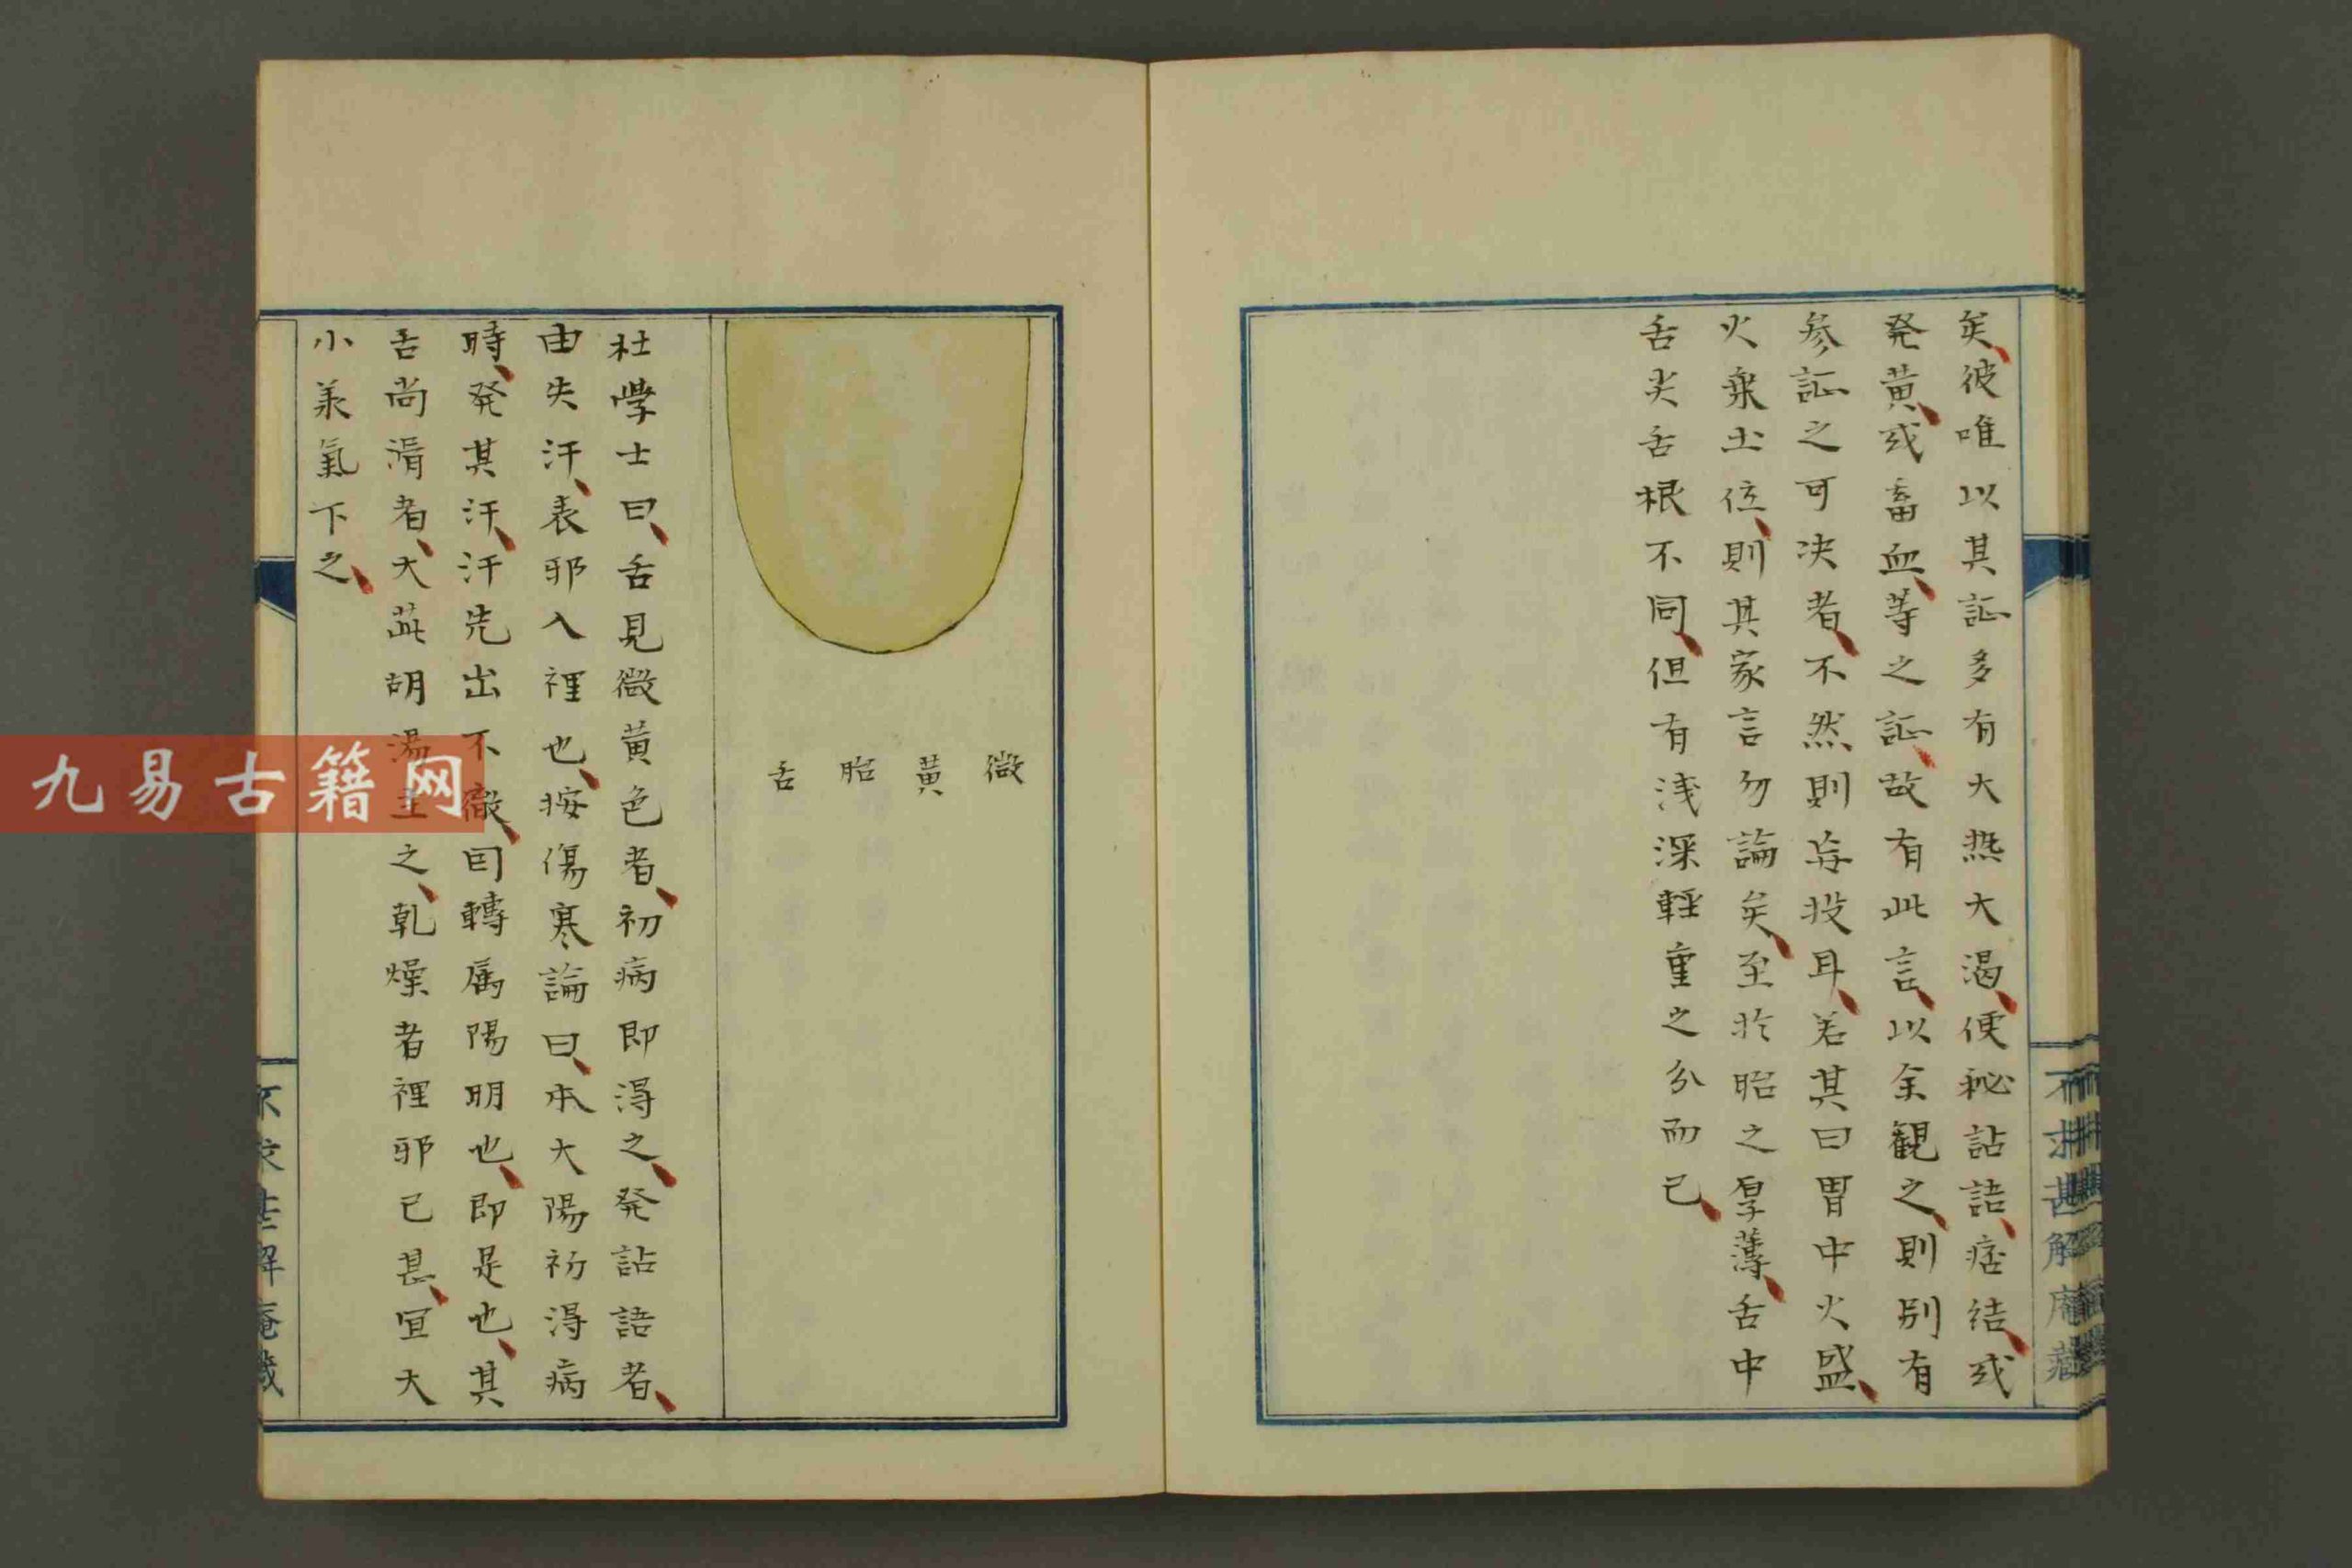 矣、彼唯以其証多有大熱大渇、便秘詀語、痞結、或
発黄、或畜血、等之証、故有此言、以余観之、則別有
参証之可决者、不然則妄投耳、若其曰胃中火盛、
火乗土位、則其家言勿論矣、至於胎之厚薄、舌中
舌尖舌根不同、但有浅深輕重之分而已、
不求甚解庵藏
微
黄
胎
舌
杜學士曰、舌見微黄色者、初病即得之、発詀語者、
由失汗、表邪入裡也、按傷寒論曰、本大陽初得病
時、発其汗、汗先出不徹、因轉属陽明也、即是也、其
舌尚滑者、大茈胡湯主之、乾燥者裡邪已甚、宜大
小羕氣下之、
不求甚解庵藏
九易古籍网